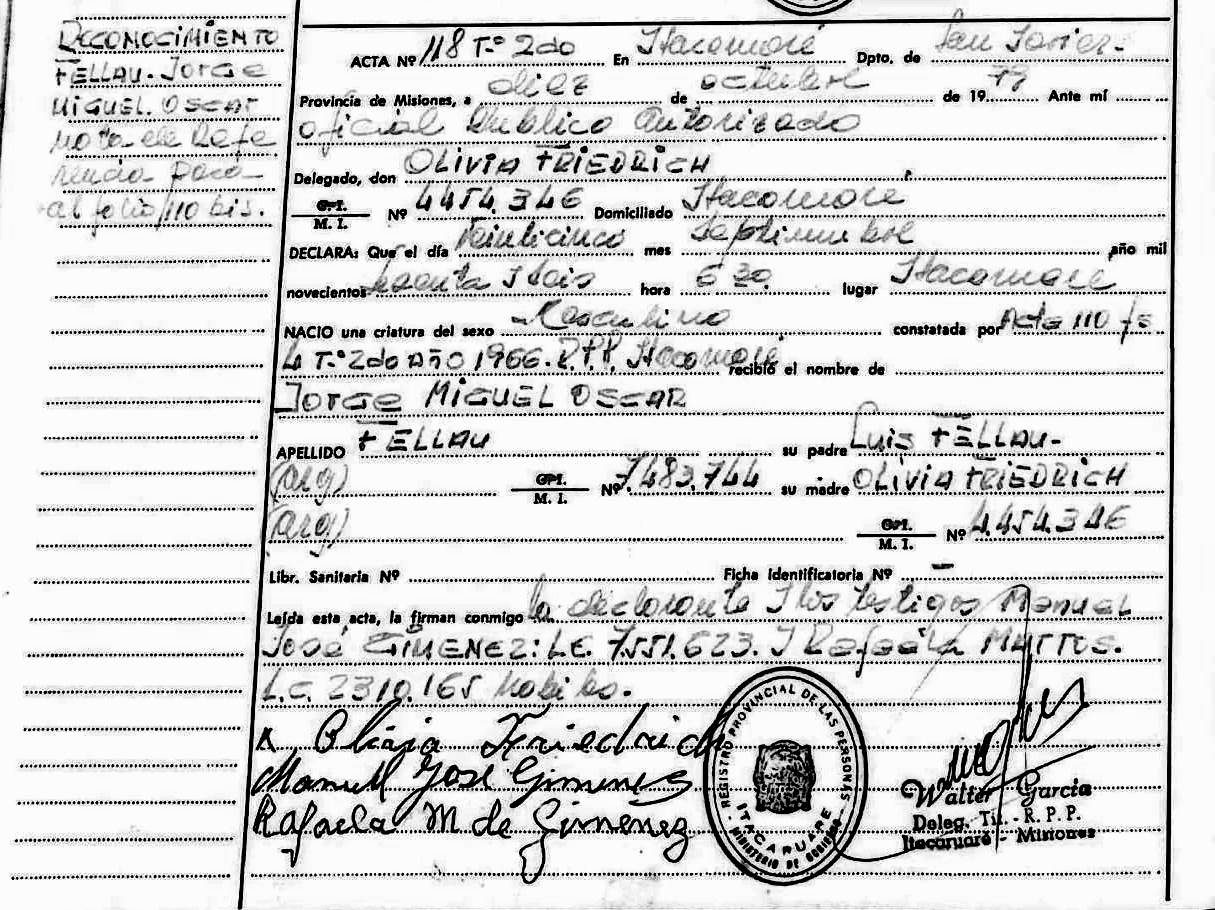 RECONOCIMIENTO
FELLAU. JORGE
MIGUEL. OSCAR
Nota de Refe
rencia para
al folio 110 bis.
ACTA Nº 118 T.º 2do En Itacaruaré Dpto. de San Javier-
Provincia de Misiones, a diez de octubre de 19 79 Ante mí
oficial Publico autorizado
Delegado, don OLIVIA FRIEDRICH
G.P.I. M. I. Nº 4454.346 Domiciliado Itacaruaré
DECLARA: Que el día Veinticinco mes Septiembre año mil
novecientos sesenta I seis hora 6 30 lugar Itacaruaré
NACIO una criatura del sexo Masculino constatada por Acta 110 fs
4 T.º 2do AÑO 1966. R.P.P. Itacaruaré recibió el nombre de
JORGE MIGUEL OSCAR
APELLIDO FELLAU su padre Luis FELLAU-
(arg) G.P.I. M. I. Nº 7.483.744 su madre OLIVIA FRIEDRICH
(arg) G.P.I. M. I. Nº 4.454.346
Libr. Sanitaria Nº Ficha Identificatoria Nº —
Leída esta acta, la firman conmigo la declarante I los testigos Manuel
José GIMENEZ: L.E. 7.551.623. I Rafaela MATTOS.
L.C. 2310.165 habiles.
x Olivia Friedrich
Manuel José Gimenes
Rafaela M de Gimenez
REGISTRO PROVINCIAL DE LAS PERSONAS
ITACARUARE
MINISTERIO DE GOBIERNO
Walter Garcia
Deleg. Tit. - R. P. P.
Itacaruaré - Misiones